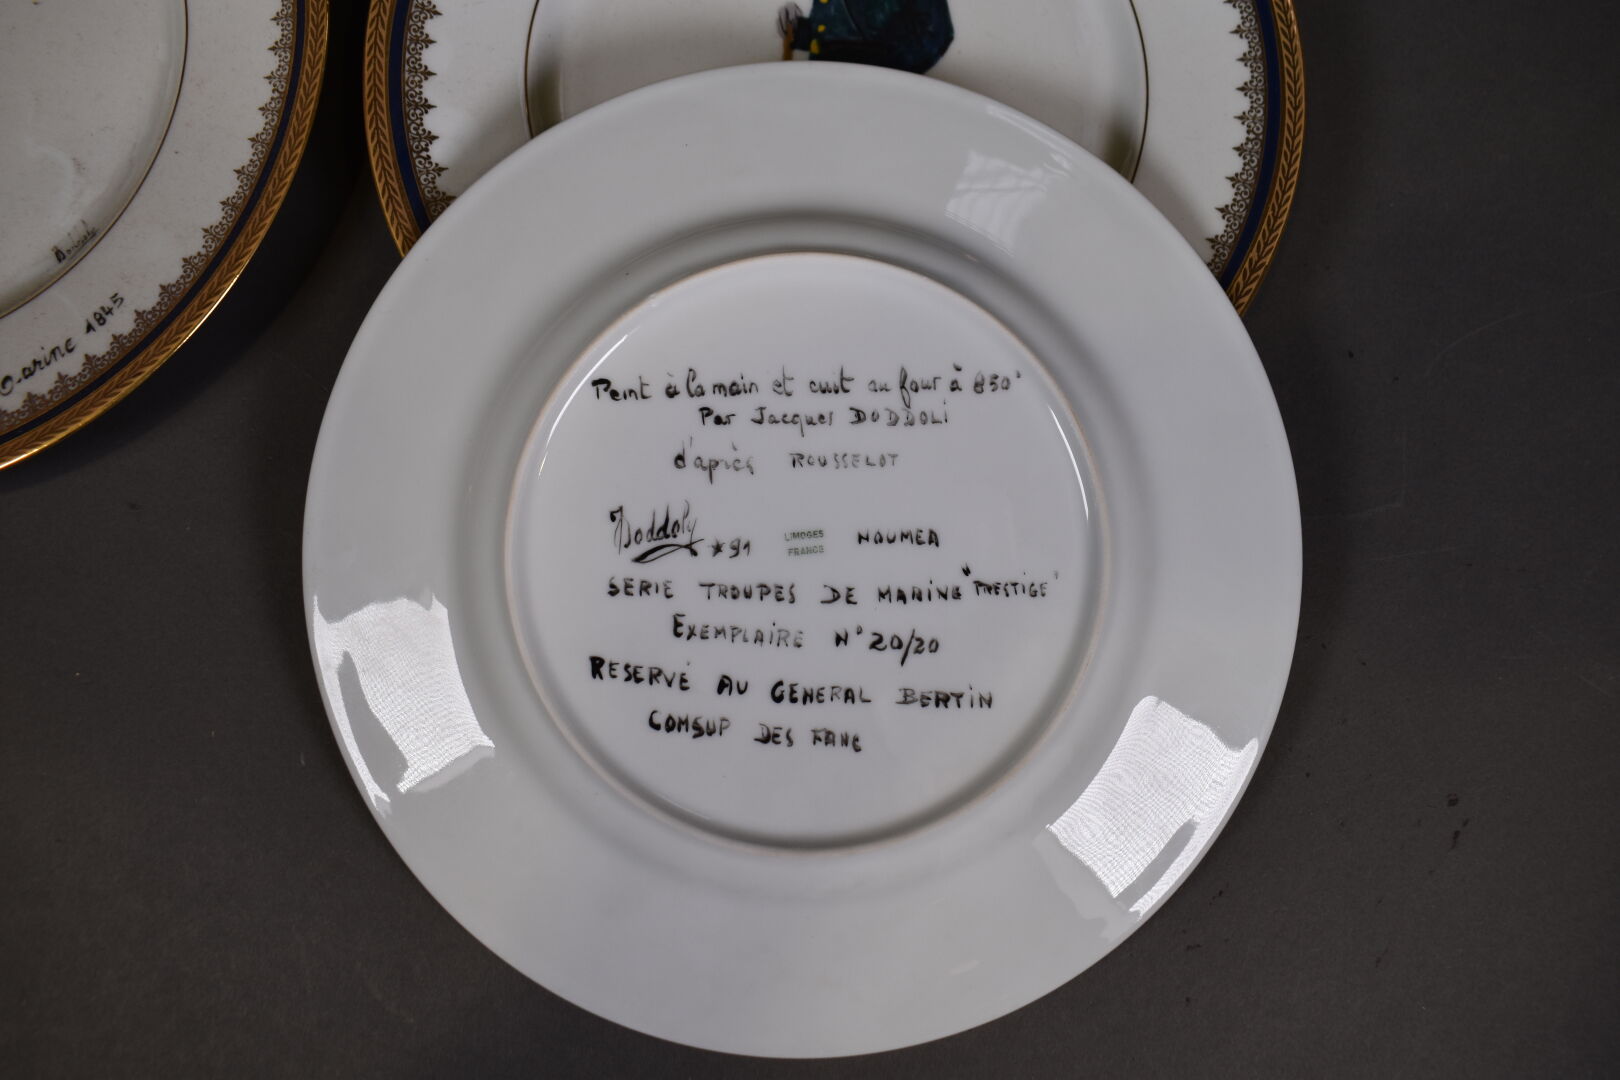 Peint à la main et cuit au four à 850°
Par Jacques DODDOLI
d'après ROUSSELOT
Doddoly *91 LIMOGES FRANCE NOUMEA
SERIE TROUPES DE MARINE "PRESTIGE"
EXEMPLAIRE N° 20/20
RESERVÉ AU GENERAL BERTIN
COMSUP DES FANC
arine 1845